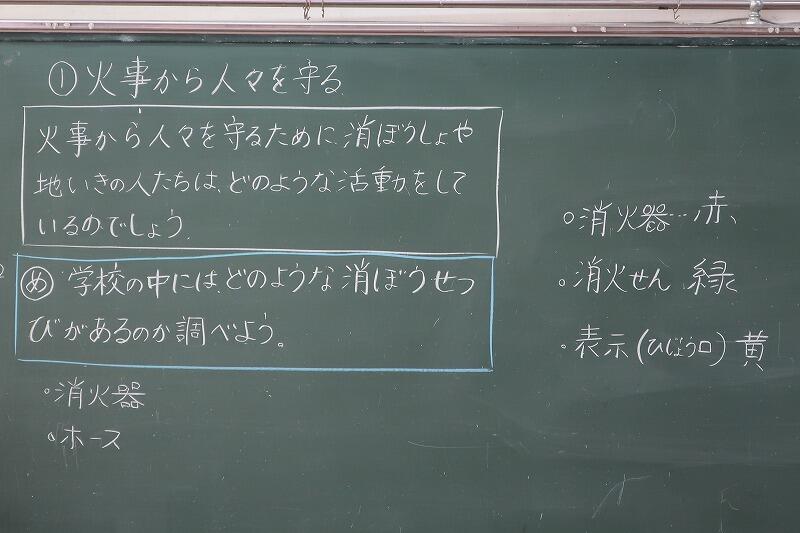 ①火事から人々を守る
火事から人々を守るために、消ぼうしょや
地いきの人たちは、どのような活動をして
いるのでしょう。
め 学校の中には、どのような消ぼうせつ
びがあるのか調べよう。
・消火器
・ホース
○消火器…赤
○消火せん 緑
・表示(ひじょう口) 黄